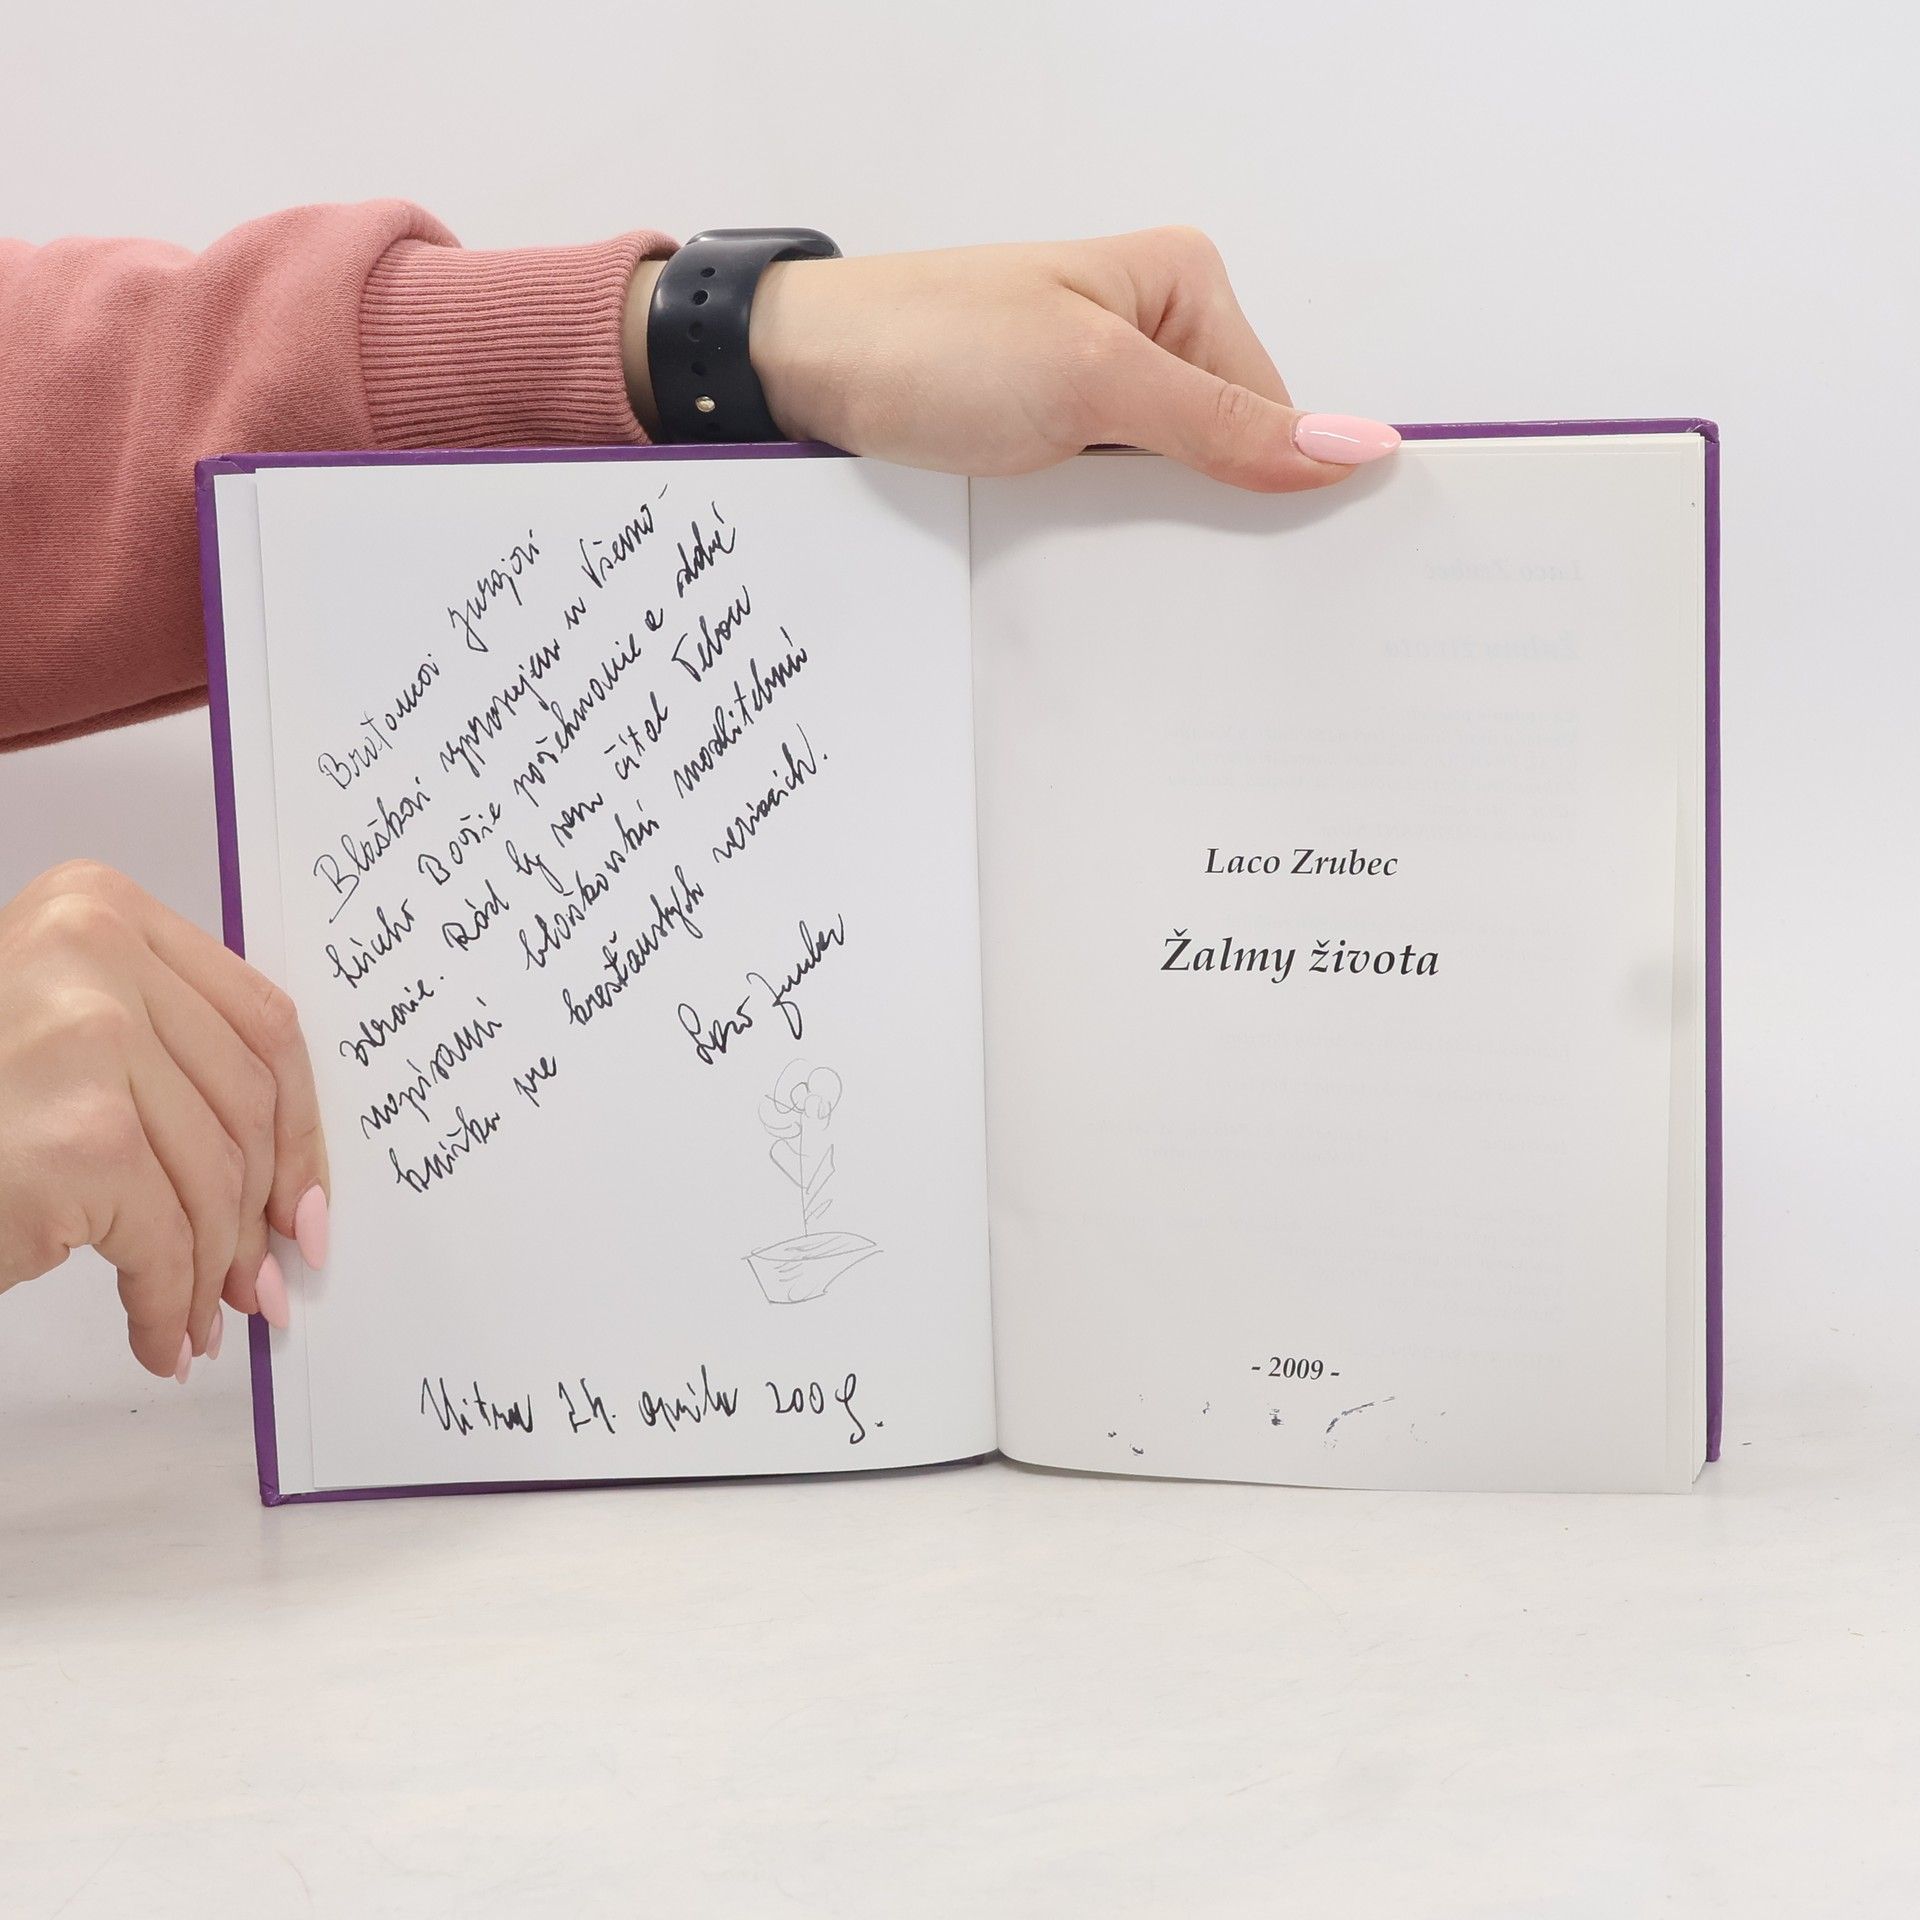 Braťomovi Jurajovi
Blaškovi vyprosujem u Všemo-
húceho Božie požehnanie a dobré
zdravie. Rád by som čítal Tebou
napísanú blaškovskú modlitebnú
knižku pre kresťanských veriacich.
Laco Zrubec
Nitra 24. apríla 2009.
Laco Zrubec
Žalmy života
- 2009 -